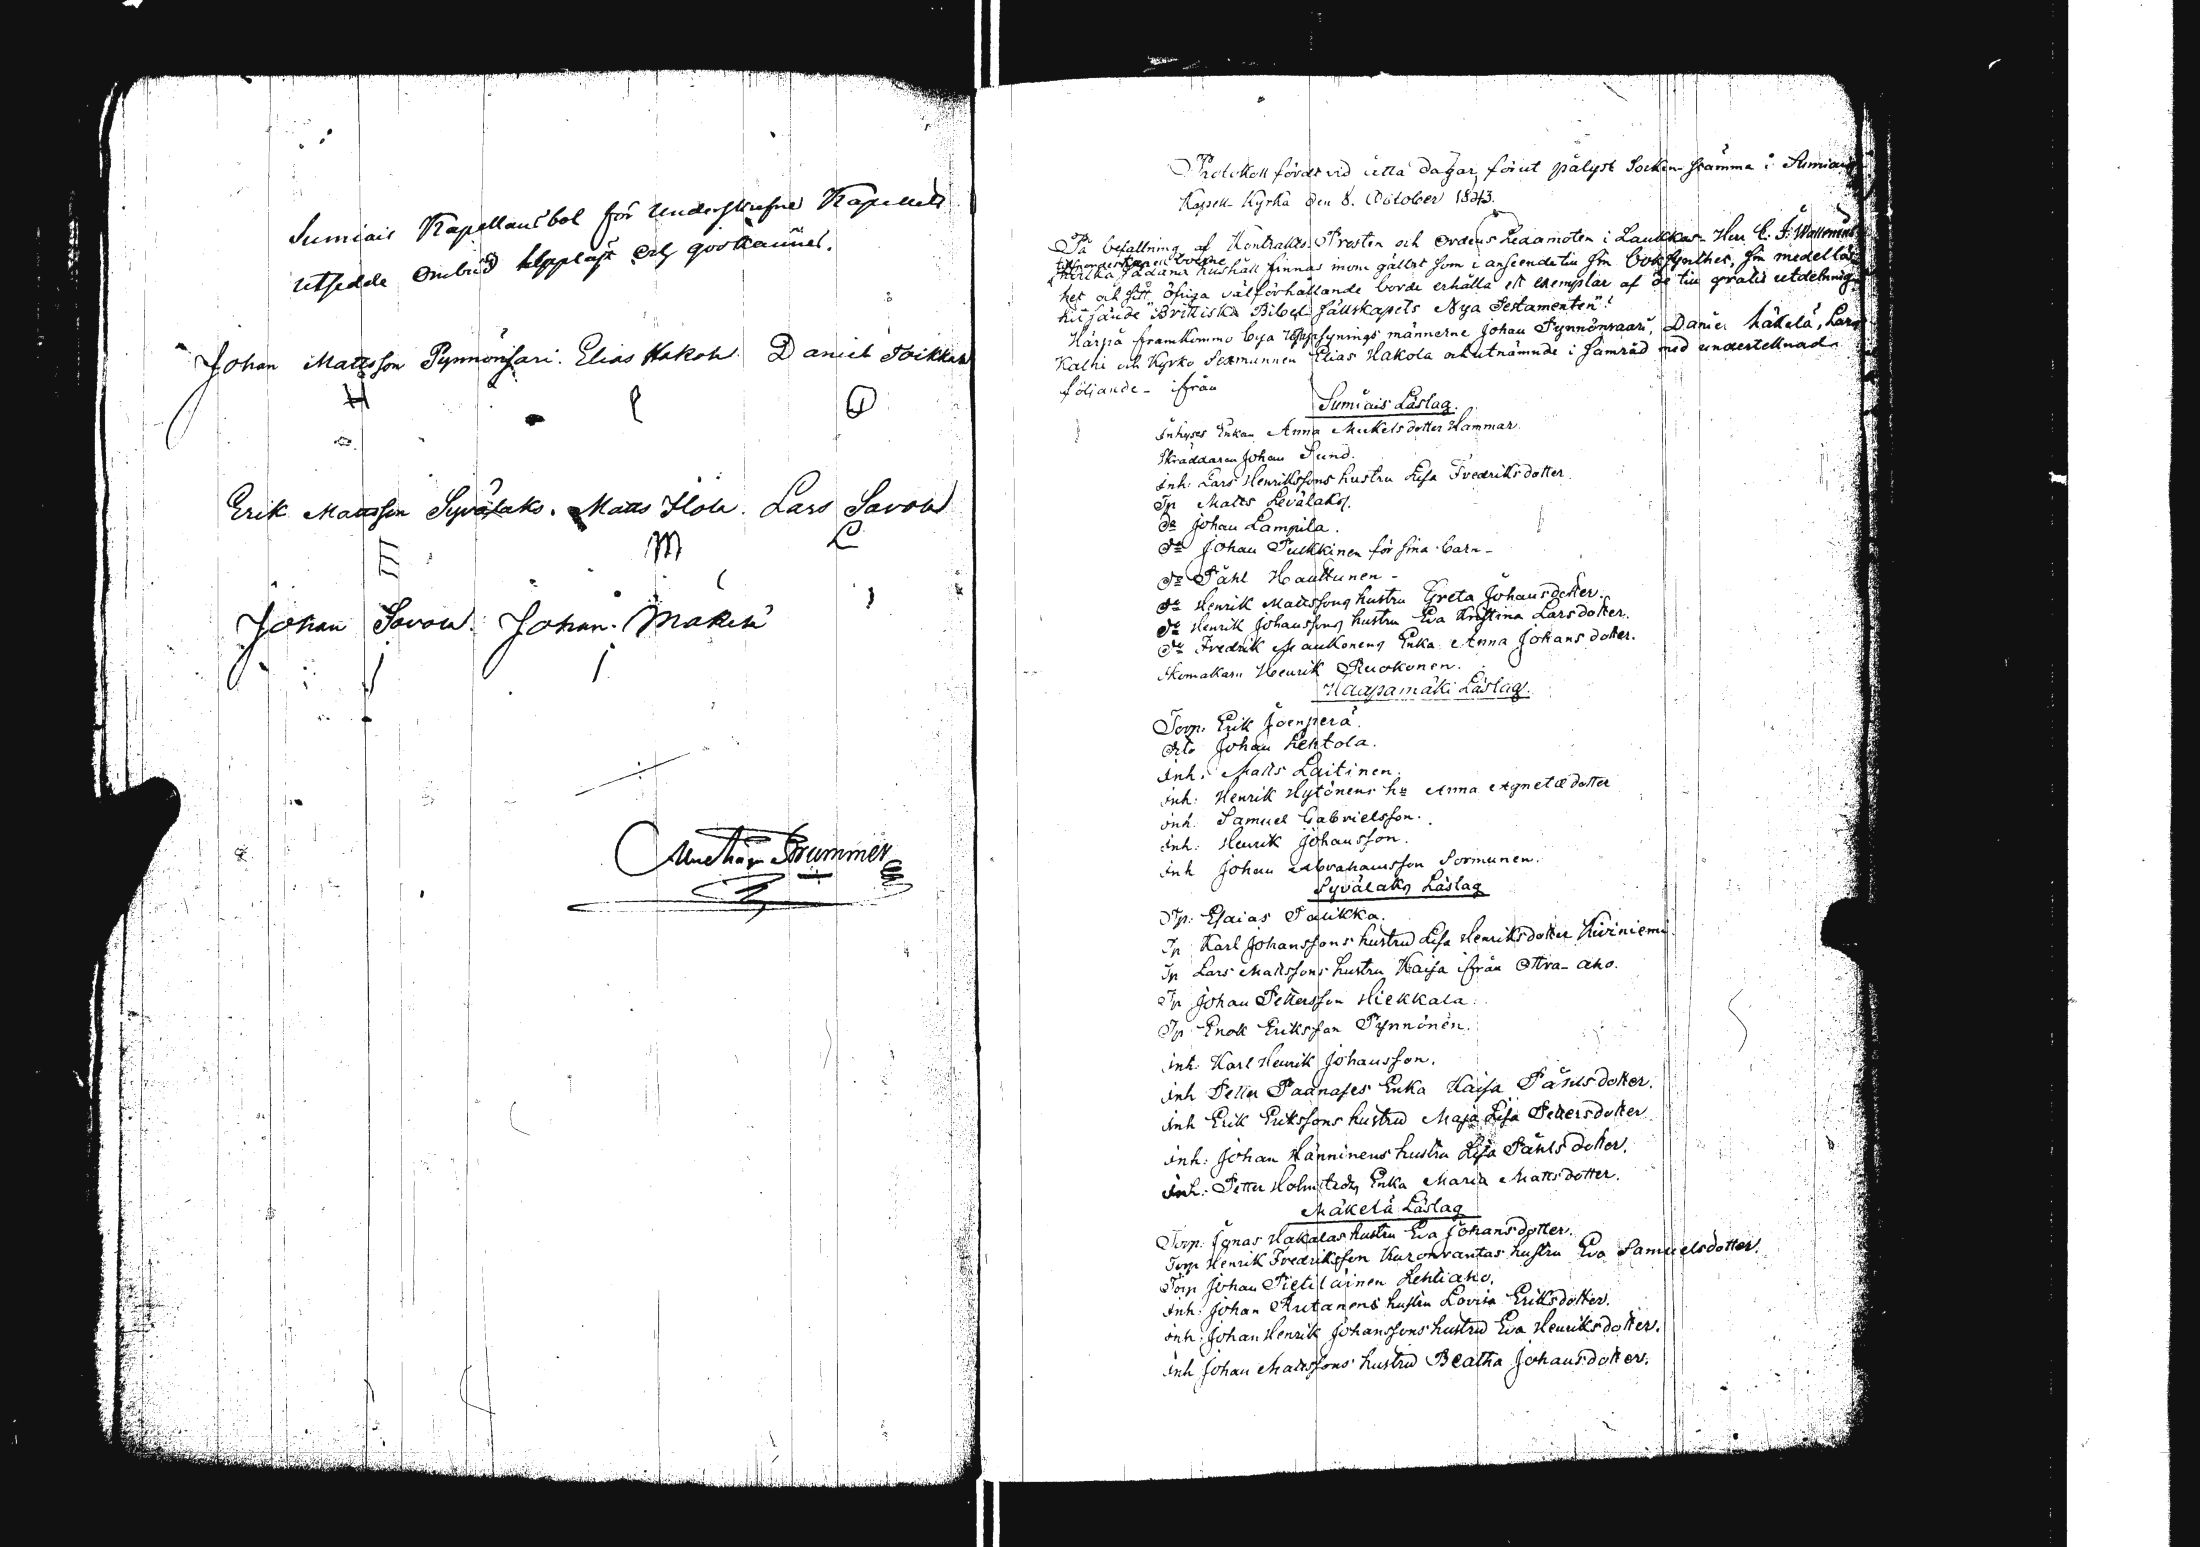 Sumiais Kapellansbol för underskrefne Kapellets
utsedde ombud uppläst och godkännes.
Johan Mattsson Pynnönsari. Elias Hakola Daniel Toikkala
H
E
Erik Mattsson Syvälaks. Matts Ilola. Lars Savola
E M L
Johan Savola. Johan Mäkelä
J J
Brummer
Protokoll fördt vid åtta dagar förut pålyst Sockenstämma i Sumiais
Kapell Kyrka den 8. October 1843.
På befallning af Kontrakts-Prosten och Ordens Ledamoten i Laukkas Herr C. J. Wallenius
hvilka sådana hushåll finnas inom gället som i anseende till sin bok synthet, sin medellös-
het och sitt öfriga välförhållande borde erhålla ett exemplar af de till gratis utdelning
hitsände "Brittiska Bibel Sällskapets Nya Testamenten".
Härpå framkommo bya uppsyningsmännerne Johan Pynnönsaari, Daniel Mäkelä, Lars
Kalhi och Kyrko Sexmannen Elias Hakola och utnämnde i samråd med undertecknad
följande ifrån
Sumiais Läslag.
Inhyses Enkan Anna Mickelsdotter Hammar.
Skräddaren Johan Sund.
Inh: Lars Henrikssons hustru Lisa Fredriksdotter.
Tp Matts Levälaks.
do Johan Lampila.
do Johan Pukkinen för sina barn
do Påhl Hauttunen
do Henrik Mattssons hustru Greta Johansdotter.
do Henrik Johanssons hustru Eva Kristina Larsdotter.
do Fredrik Maukonens Enka Anna Johansdotter.
Skomakarn Henrik Ruokonen.
Haapamäki Läslag.
Torp. Erik Joenperä.
dito Johan Lehtola.
Inh. Matts Laitinen.
Inh: Henrik Hytönens hu Anna Agnetædotter
Inh. Samuel Gabrielsson.
Inh: Henrik Johansson.
Inh Johan Abrahamsson Sormunen.
Syvälaks Läslag
Tp. Esaias Palikka.
Tp Karl Johanssons hustru Lisa Henriksdotter Kiviniemi.
Tp Lars Mattssons hustru Kaisa ifrån Ottra-aho.
Tp Johan Pettersson Hiekkala.
Tp Enok Eriksson Pynnönen.
inh. Karl Henrik Johansson.
inh Petter Paanases Enka Kaisa Påhlsdotter.
inh Erik Erikssons hustru Maja Lisa Pettersdotter
inh: Johan Hänninens hustru Lisa Påhlsdotter.
inh: Petter Holmstedts Enka Maria Mattsdotter.
Mäkelä Läslag
Torp. Ignas Hakalas hustru Eva Johansdotter.
Torp Henrik Fredriksson Kuronrantas hustru Eva Samuelsdotter.
Torp Johan Pietiläinen Lehtiaho.
Inh: Johan Rutanens hustru Lovisa Eriksdotter.
inh: Johan Henrik Johanssons hustru Eva Henriksdotter.
Inh Johan Mattssons hustru Beatha Johansdotter.